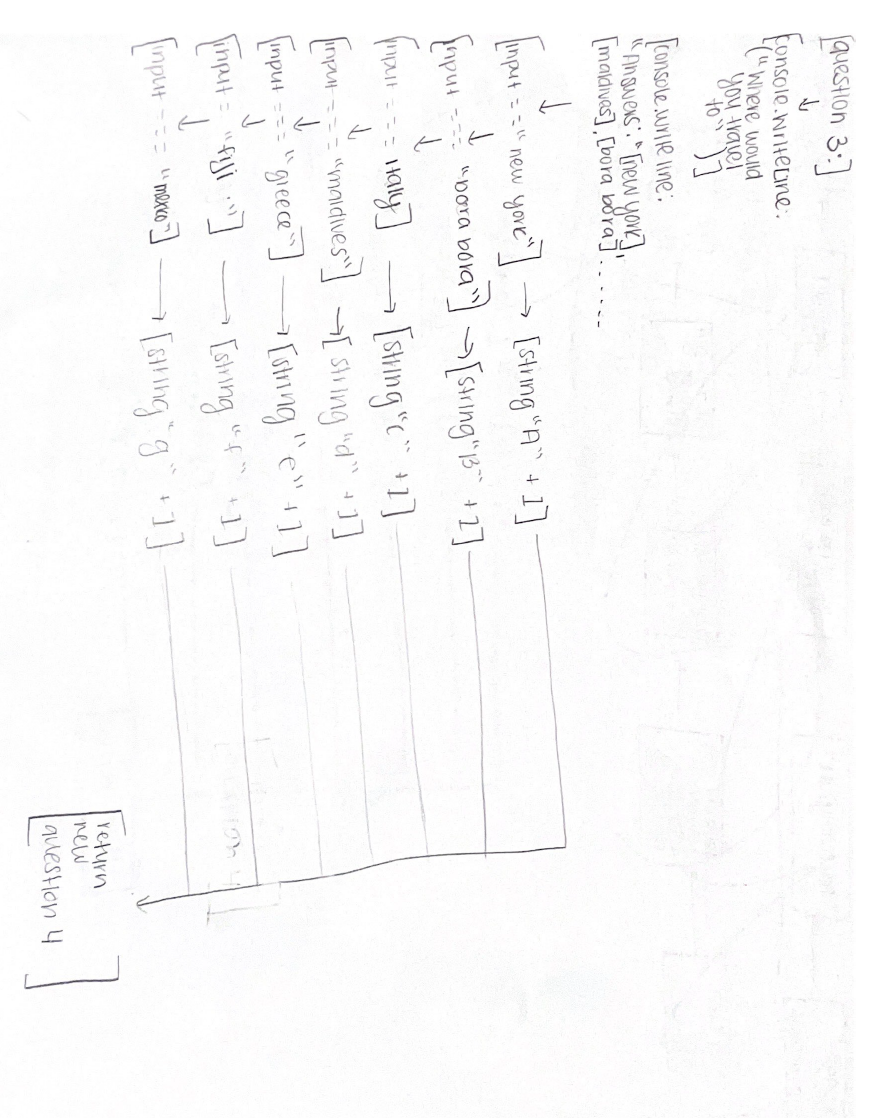 [question 3:]
[console.writeline:
("where would
you travel
to" )]
[console.write line:
"Answers: "[new york],
[maldives], [bora bora].......
[input == "new york"] → [string "A" + 1]
[input === "bora bora"] → [string "B" + 1]
[input === itally] → [string "c" + 1]
[input === "maldives"] → [string "d" + 1]
[input === "greece"] → [string "e" + 1]
[input = "fiji :"] → [string "f" + 1]
[input === "mexico"] → [string "g" + 1]
[return
new
question 4]